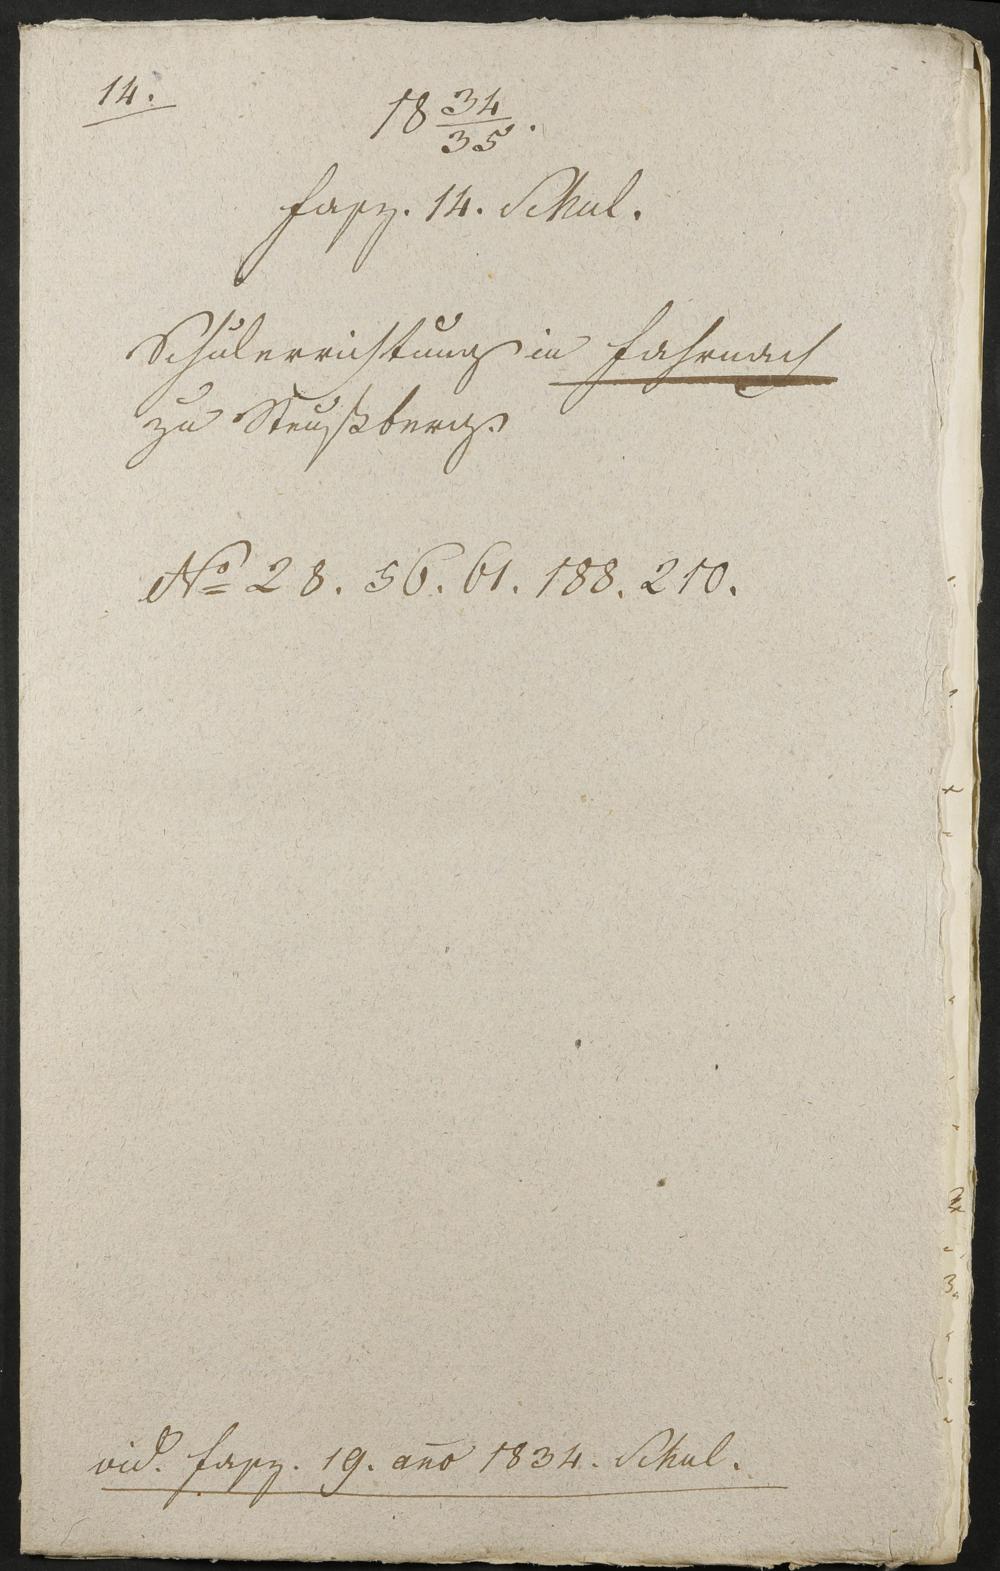 14.
18 34/35.
Fasz. 14. Schul.
Schulerrichtung in Fahrnach
zu Steußberg.
No 28. 56. 61. 188. 210.
vid. Fasz. 19. año 1834. Schul.